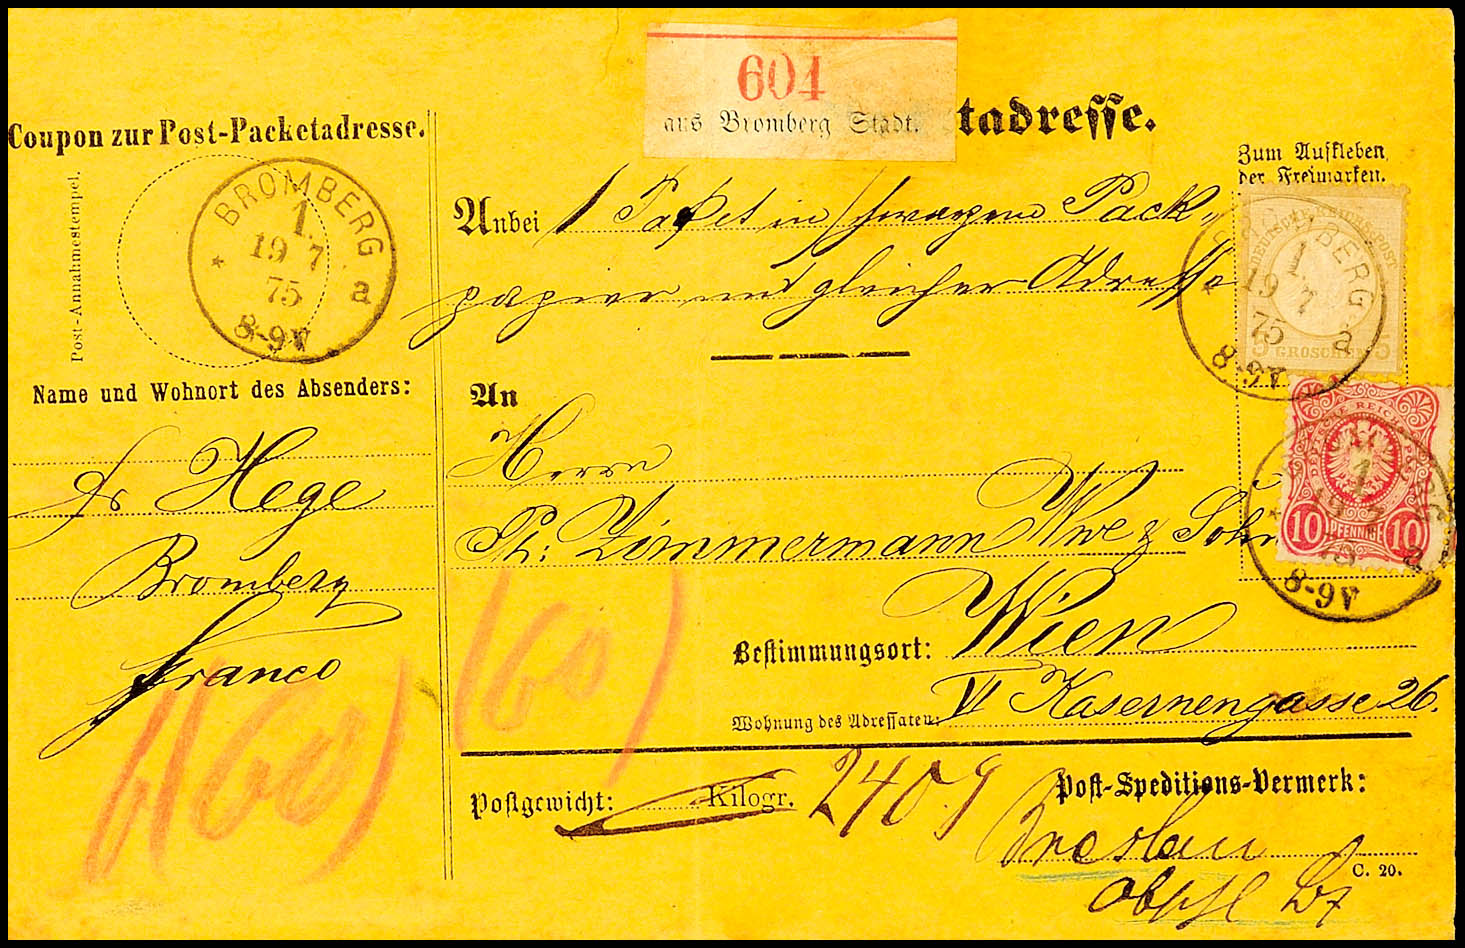 604
aus Bromberg Stadt.
tadresse.
Coupon zur Post-Packetadresse.
Post-Annahmestempel.
BROMBERG
1.
19 7
75
* a
8-9V
Name und Wohnort des Absenders:
Fr Hege
Bromberg
franco
(60)
Anbei 1 Packet in schwarzem Pack-
papier mit gleicher Adresse
Zum Aufkleben
der Freimarken.
DEUTSCHE REICHS-POST
5 GROSCHEN 5
BROMBERG
1
19 7
75
* a
8-9V
10 PFENNIGE 10
1
19 7
75
* a
8-9V
An
Herrn
Ph: Zimmermann Wwe & Sohn
Bestimmungsort: Wien
Wohnung des Adressaten: VI Kasernengasse 26.
(60)
Postgewicht: Kilogr. 240 g
Post-Speditions-Vermerk:
Breslau
C. 20.